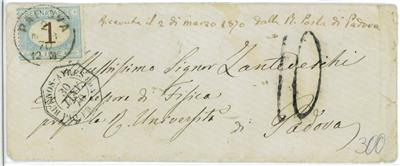 PADOVA
12 M
1
Ricevuta il 2 di marzo 1870 dalla R. Posta di Padova
BUENOS-AYRES
10
Signor Zantedeschi
Professore di Fisica
presso la R. Università
di Padova
300